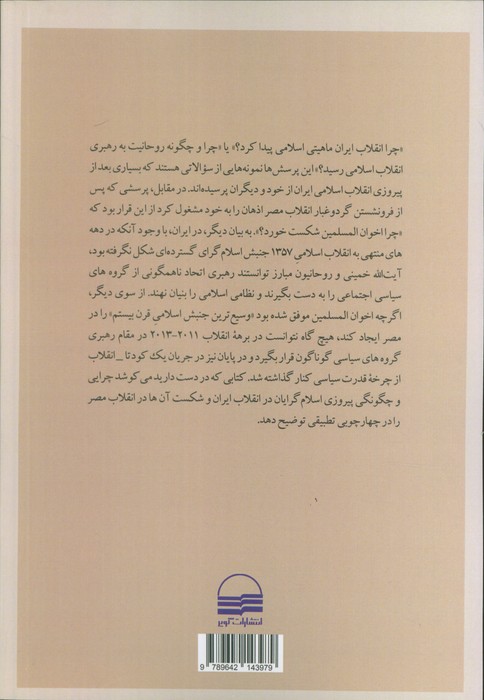 «چرا انقلاب ایران ماهیتی اسلامی پیدا کرد؟» یا «چرا و چگونه روحانیت به رهبری
انقلاب اسلامی رسید؟» این پرسش‌ها نمونه‌هایی از سؤالاتی هستند که بسیاری بعد از
پیروزی انقلاب اسلامی ایران از خود و دیگران پرسیده‌اند. در مقابل، پرسشی که پس
از فرونشستن گردوغبار انقلاب مصر اذهان را به خود مشغول کرد از این قرار بود که
«چرا اخوان المسلمین شکست خورد؟». به بیان دیگر، در ایران، با وجود آنکه در دهه
های منتهی به انقلاب اسلامیِ ۱۳۵۷ جنبش اسلام‌گرای گسترده‌ای شکل نگرفته بود،
آیت‌الله خمینی و روحانیون مبارز توانستند رهبری اتحاد ناهمگونی از گروه های
سیاسی اجتماعی را به دست بگیرند و نظامی اسلامی را بنیان نهند. از سوی دیگر،
اگرچه اخوان المسلمین موفق شده بود «وسیع‌ترین جنبش اسلامیِ قرن بیستم» را در
مصر ایجاد کند، هیچ گاه نتوانست در برهۀ انقلاب ۲۰۱۱-۲۰۱۳ در مقام رهبری
گروه های سیاسی گوناگون قرار بگیرد و در پایان نیز در جریان یک کودتا _ انقلاب
از چرخۀ قدرت سیاسی کنار گذاشته شد. کتابی که در دست دارید می کوشد چرایی
و چگونگی پیروزی اسلام گرایان در انقلاب ایران و شکست آن ها در انقلاب مصر
را در چهارچوبی تطبیقی توضیح دهد.
انتشارات کویر
9 789642 143979